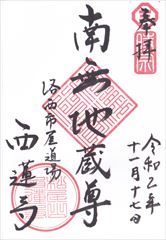 奉拝
令和二年
十一月十七日
南無地蔵尊
洛西市屋道場
西蓮寺